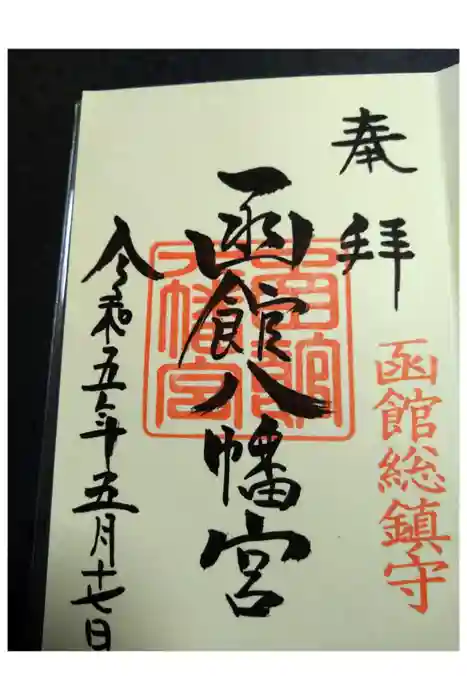 奉拝
函館総鎮守
函館八幡宮
函館
八幡宮
令和五年五月十七日